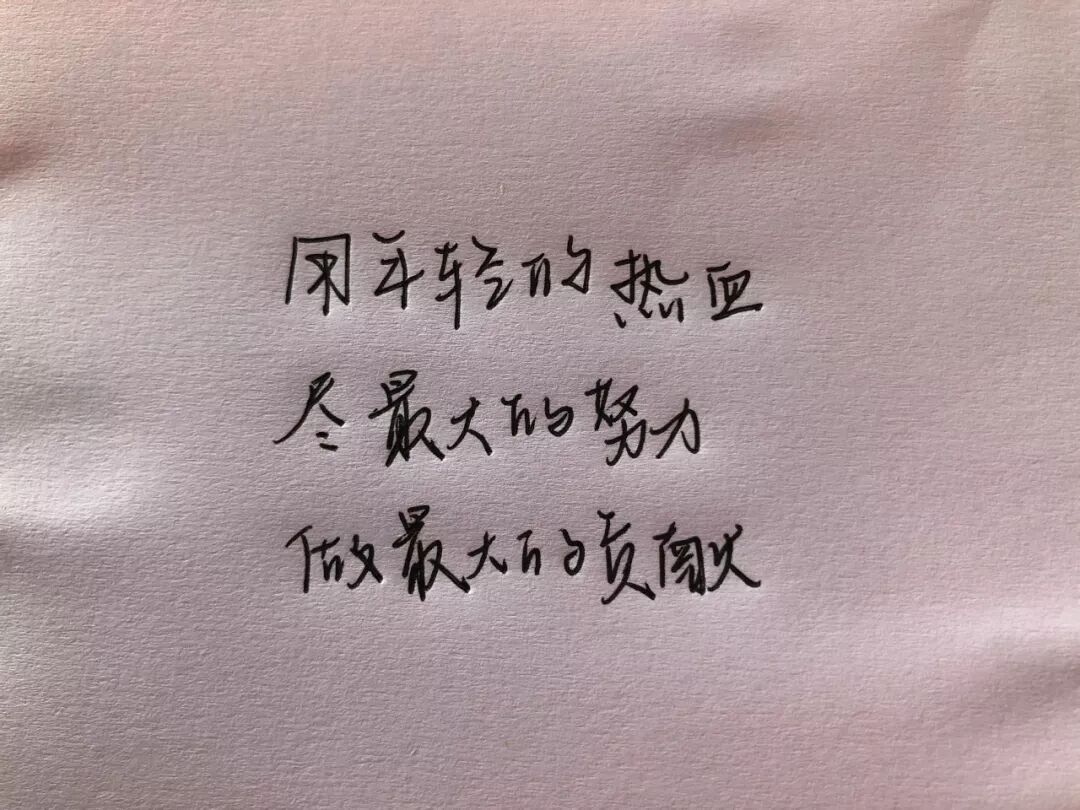 用年轻的热血
尽最大的努力
做最大的贡献